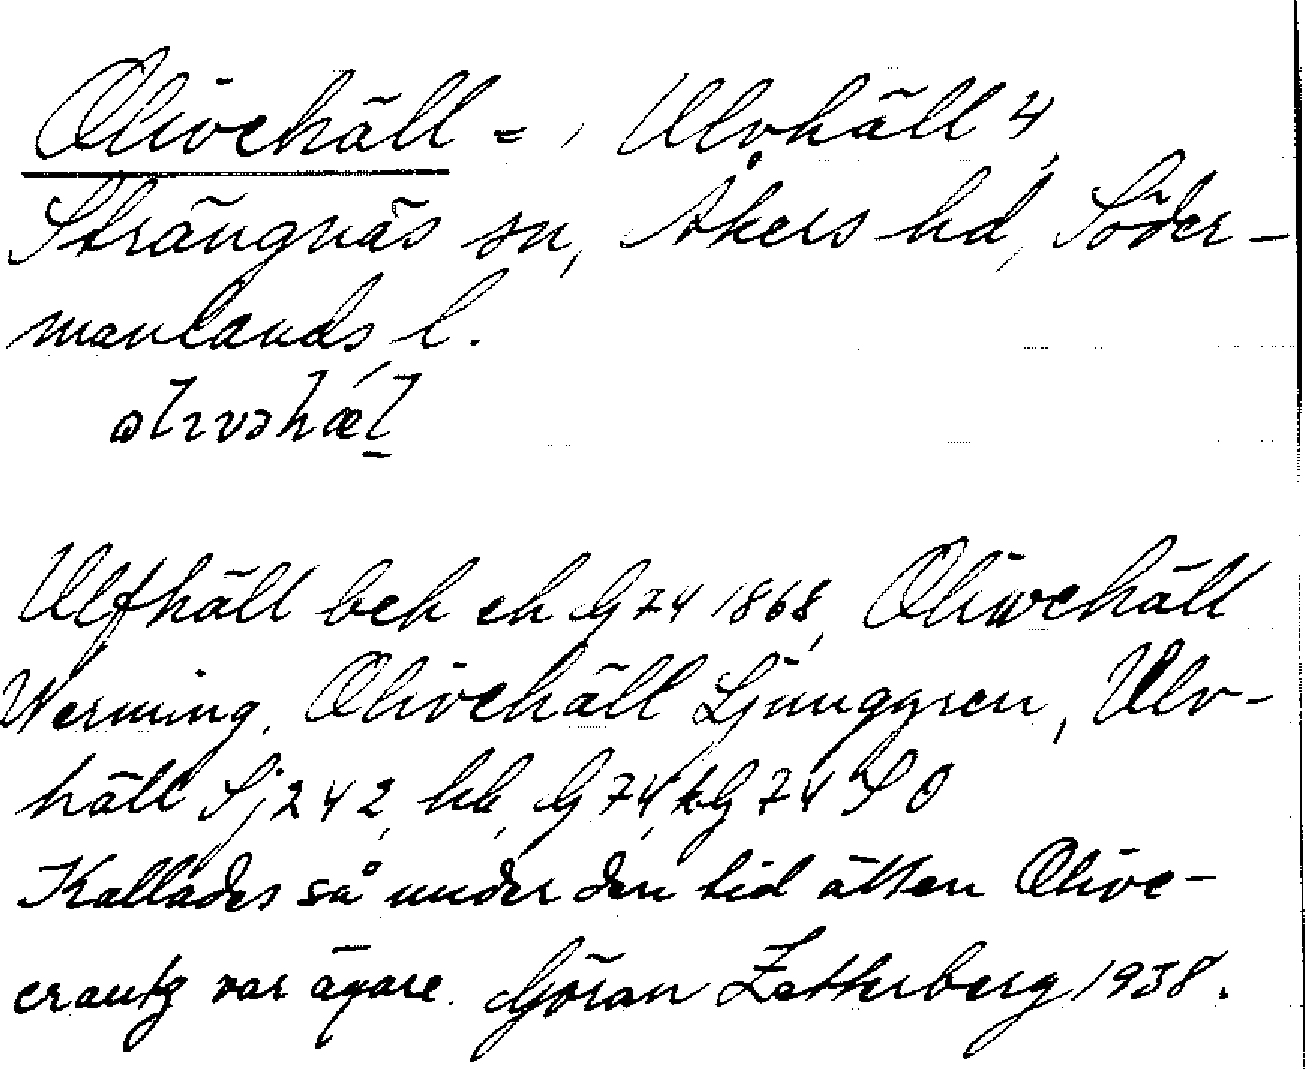 Olivehäll = , Ulvhäll 4,
Strängnäs sn, Åkers hd, Söder-
manlands l.
Ulfhäll bek ek G 74 1868, Olivehäll
Werming, Olivehäll Ljunggren, Ulv-
häll Sj 242, hk, G 74, kG 74 SO
Kallades så under den tid ätten Olive-
crantz var ägare. Göran Zetterberg 1938.